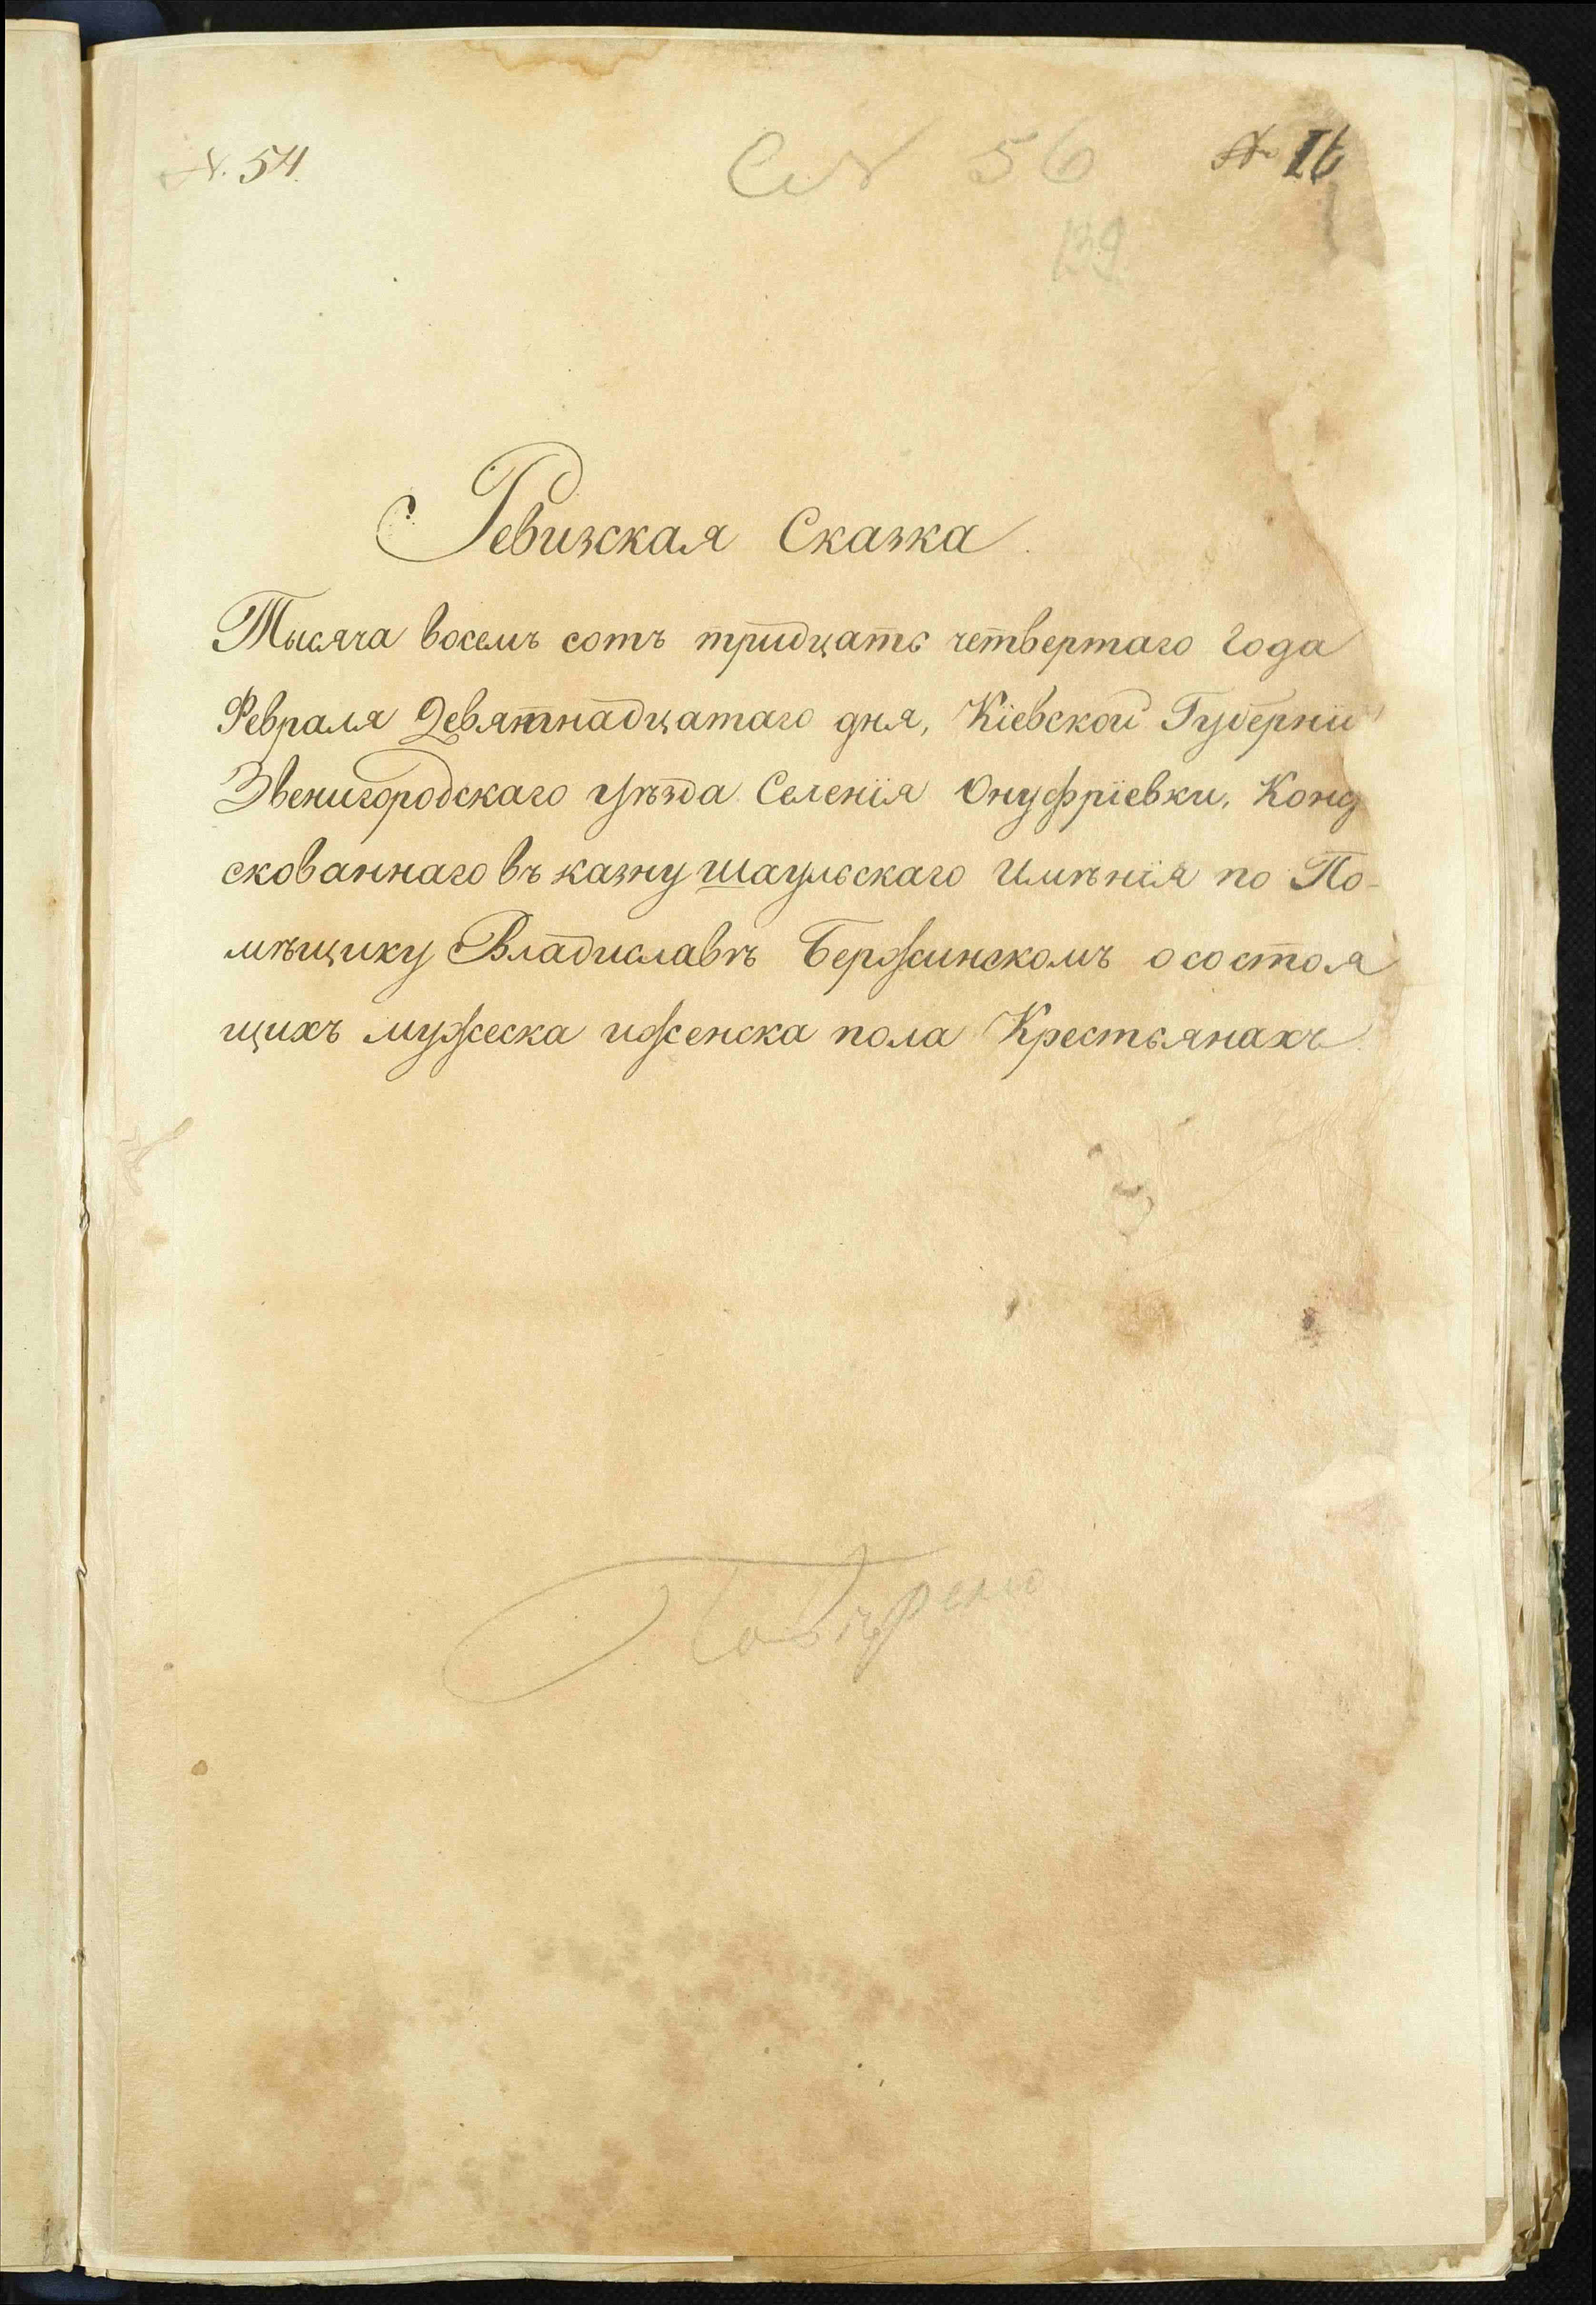 N. 54.
56
№ 16
139
Ревизская Сказка.
Тысяча восемъ сотъ тридцать четвертаго Года
Февраля Девятнадцатаго дня, Кіевской Губерніи
Звенигородскаго уѣзда Селенія Онуфріевки, Конф
скованнаго въ казну шаульскаго Имѣнія по По-
мѣщику Владиславѣ Бержинскомъ о состоя
щихъ мужеска и женска пола Крестьянахъ.
Повѣрено